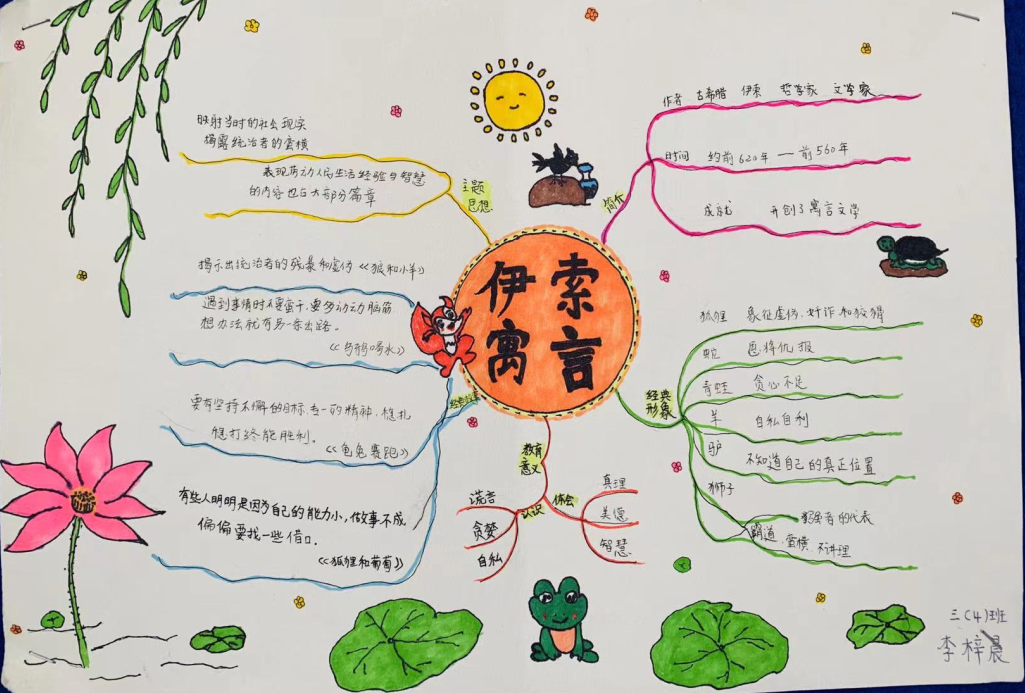 伊索
寓言
简介
作者 古希腊 伊索 哲学家 文学家
时间 约前620年—前560年
成就 开创了寓言文学
经典
形象
狐狸 象征虚伪、奸诈和狡猾
蛇 恩将仇报
青蛙 贪心不足
羊 自私自利
驴 不知道自己的真正位置
狮子
强者的代表
霸道、蛮横、不讲理
教育
意义
认识
谎言
贪婪
自私
体会
真理
美德
智慧
主题
思想
映射当时的社会现实
揭露统治者的蛮横
表现劳动人民生活经验与智慧
的内容也占大部分篇章
经典故事
揭示出统治者的残暴和虚伪《狼和小羊》
遇到事情时不要蛮干,要多动动脑筋
想办法就有另一条出路。
《乌鸦喝水》
要有坚持不懈的目标,专一的精神,稳扎
稳打终能胜利。
《龟兔赛跑》
有些人明明是因为自己的能力小,做事不成
偏偏要找一些借口。
《狐狸和葡萄》
三(4)班
李梓晨